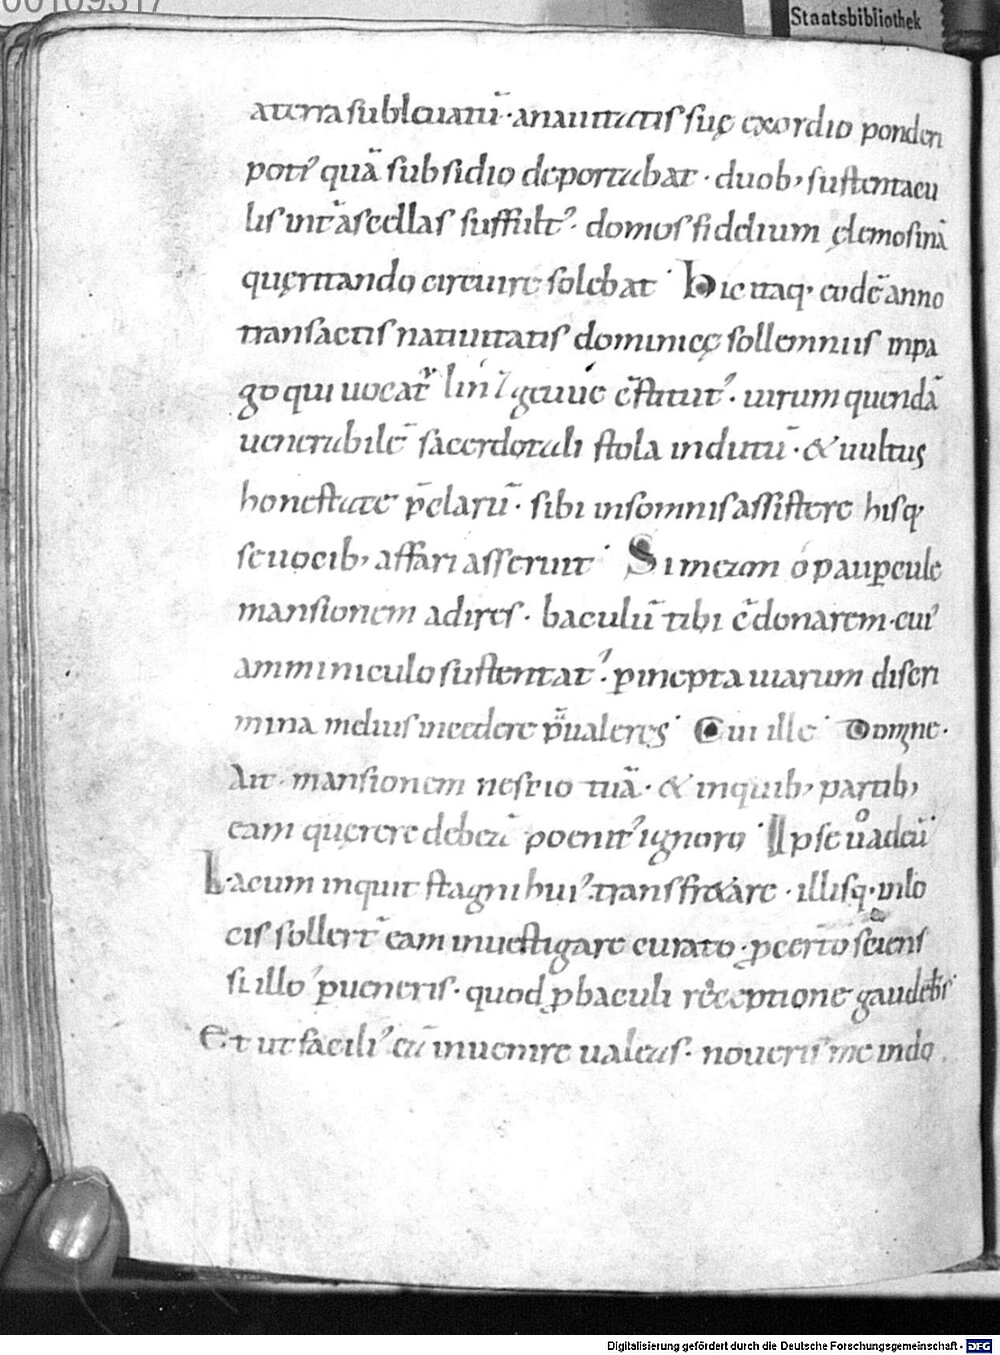 00109317
Staatsbibliothek
a terra subleuatū· a natiuitatis suę exordio ponderi
poti᾿ quā subsidio deportabat· duob; sustentacu
lis int̄ ascellas suffult᾿· domos fidelium ęlemosinā
quęritando circuire solebat· Hic itaq· eodē anno
transactis natiuitatis dominicę sollemniis in pa
go qui uocat᾿ c̄stitut᾿· uirum quendā
uenerabilē sacerdotali stola indutū· & uultus
honestate p̄clarū· sibi in somnis assistere hisq·
se uocib; affari asseruit· Si meam o paupercule
mansionem adires· baculū tibi c̄donarem· cui᾿
amminiculo sustentat᾿· p inepta uiarum discri
mina melius incedere p̄ualeres· Cui ille· Domne·
Ait· mansionem nescio tuā· & in quib; partib;
eam quęrere debeā poenit᾿ ignoro· Ipse u᾿o ad eū
Lacum inquit stagni hui᾿ transfretare· illisq· in lo
cis sollert̄ eam inuestigare curato· p certo sciens
si illo pueneris· quod p baculi receptione gaudebis
Et ut facili᾿ eā inuenire ualeas· noueris me in do
Digitalisierung gefördert durch die Deutsche Forschungsgemeinschaft - DFG